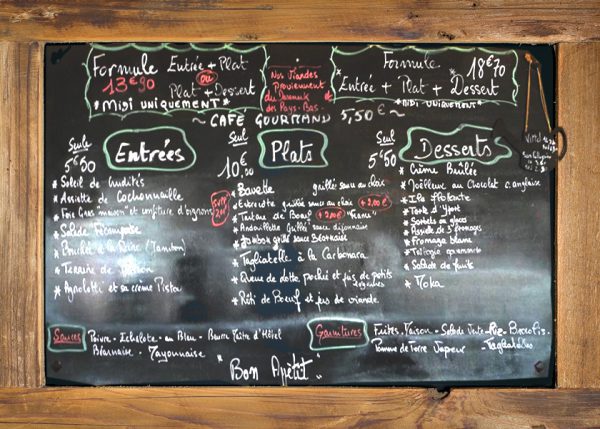 Formule Entrée + Plat
13€90 ou
Plat + Dessert
*Midi uniquement*
Nos Viandes
Proviennent
du Danemark et
des Pays-Bas
Formule 18€70
Entrée + Plat + Dessert
*Midi uniquement*
~ Café Gourmand ~ 5,50 €
Seule
6€50
Entrées
* Soleil de Crudités
* Assiette de Cochonnaille
* Foie Gras maison et confiture d'oignons
* Salade Fécampoise
* Bouchée à la Reine (Jambon)
* Terrine de
* Agnolotti et sa crème Pistou
Seul
10€00
Plats
* Bavette grillée sauce au choix
* Entrecôte grillée sauce au choix + 2,00€
* Tartare de Boeuf + 2,00€
* Andouillette Grillée sauce dijonnaise
* Jambon grillé sauce Béarnaise
* Tagliatelle à la Carbonara
* Queue de lotte pochée et jus de petits
légumes
* Rôti de Boeuf et jus de viande
Seul
5€50
Desserts
* Crème Brûlée
* Moelleux au Chocolat c. anglaise
* Ile Flottante
* Tarte d'Yport
* Sorbets ou glaces
* Assiette de 3 fromages
* Fromage blanc
* Salade de fruits
* Moka
Sauces Poivre - Echalote - au Bleu - Beurre Maître d'Hôtel
Béarnaise - Mayonnaise
Garnitures Frites Maison - Salade Verte - Riz - Brocolis
Pomme de Terre Vapeur - Tagliatelles
"Bon Apétit"